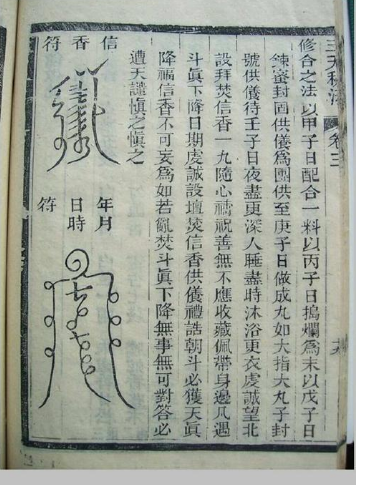 三天秘法 卷三
修合之法以甲子日配合一料以丙子日搗爛為末以戊子日
鍊蜜封固供儀為團供至庚子日做成丸如大指大丸子封
號供儀待壬子日夜盡更深人睡盡時沐浴更衣虔誠望北
設拜焚信香一丸隨心禱祝善無不應收藏佩帶身邊凡遇
斗眞下降日期虔誠設壇焚信香供儀禮誥朝斗必獲天眞
降福信香不可妄為如若亂焚斗眞下降無事無可對答必
遭天譴慎之慎之
信香符
年月
日時
符